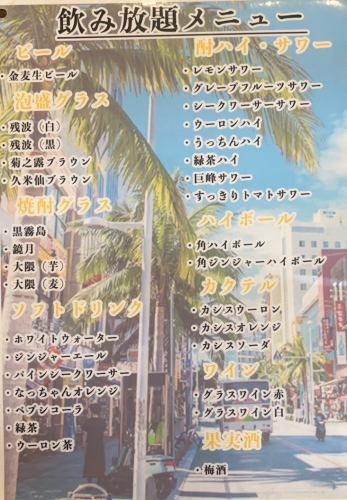 飲み放題メニュー
ビール
・金麦生ビール
泡盛グラス
・残波（白）
・残波（黒）
・菊之露ブラウン
・久米仙ブラウン
焼酎グラス
・黒霧島
・鏡月
・大隈（芋）
・大隈（麦）
ソフトドリンク
・ホワイトウォーター
・ジンジャーエール
・パインシークワーサー
・なっちゃんオレンジ
・ペプシコーラ
・緑茶
・ウーロン茶
酎ハイ・サワー
・レモンサワー
・グレープフルーツサワー
・シークワーサーサワー
・ウーロンハイ
・うっちんハイ
・緑茶ハイ
・巨峰サワー
・すっきりトマトサワー
ハイボール
・角ハイボール
・角ジンジャーハイボール
カクテル
・カシスウーロン
・カシスオレンジ
・カシスソーダ
ワイン
・グラスワイン赤
・グラスワイン白
果実酒
・梅酒